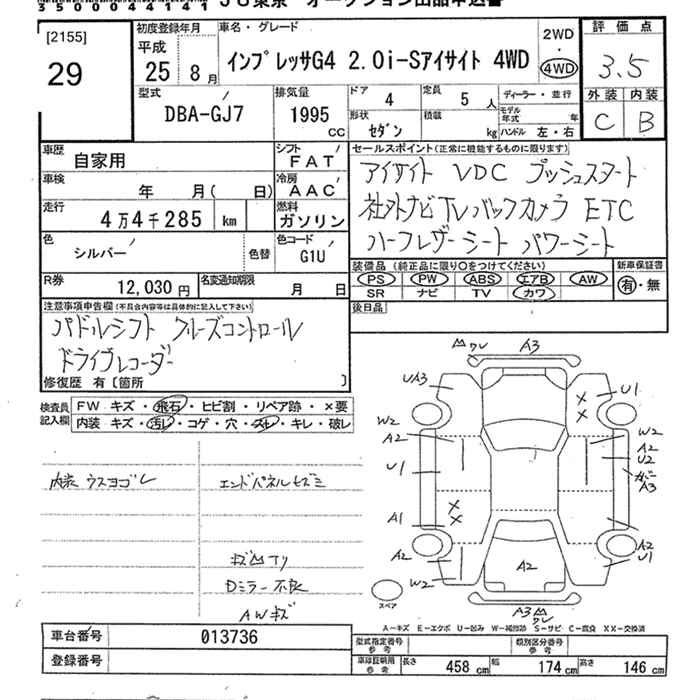 35000441414
JU東京 オークション出品申込書
[2155]
29
初度登録年月
平成
25年 8月
車名・グレード
インプレッサG4 2.0i-Sアイサイト 4WD
2WD
・
4WD
評価点
3.5
外装 内装
C B
型式
DBA-GJ7
排気量
1995
CC
ドア
4
定員
5 人
形状
セダン
積載
kg
ディーラー・並行
モデル年式 年
ハンドル 左・右
車歴
自家用
シフト
FAT
車検
年 月( 日)
冷房
AAC
走行
4万4千285 km
燃料
ガソリン
色
シルバー
色替
色コード
G1U
R券
12,030円
名変通知期限
月 日
セールスポイント(正常に機能するものに限ります)
アイサイト VDC プッシュスタート
社外ナビTVバックカメラ ETC
ハーフレザーシート パワーシート
装備品(純正品に限り○をつけてください)
PS PW ABS エアB AW
SR ナビ TV カワ
新車保証書
有・無
後日品
注意事項申告欄(不具合内容等は具体的に記入して下さい)
パドルシフト クルーズコントロール
ドライブレコーダー
修復歴 有〔箇所 〕
検査員記入欄
FW キズ・飛石・ヒビ割・リペア跡・×要
内装 キズ・汚レ・コゲ・穴・スレ・キレ・破レ
内装ウスヨゴレ
エンドパネルヒズミ
キズ凹アリ
Dミラー不良
AWキズ
凹ワレ A3
UA3 U1
×
×
W2 W2
A2 A2
U2
U1
A3
×
×
A1
A2 A2
U1
W2
A2
スペア
A3凹
ワレ
A-キズ E-エクボ U-凹み W-補修跡 S-サビ C-腐食 XX-交換済
車台番号
013736
登録番号
型式指定番号
参考
類別区分番号
参考
車庫証明用
参考
長さ 458 cm 幅 174 cm 高さ 146 cm